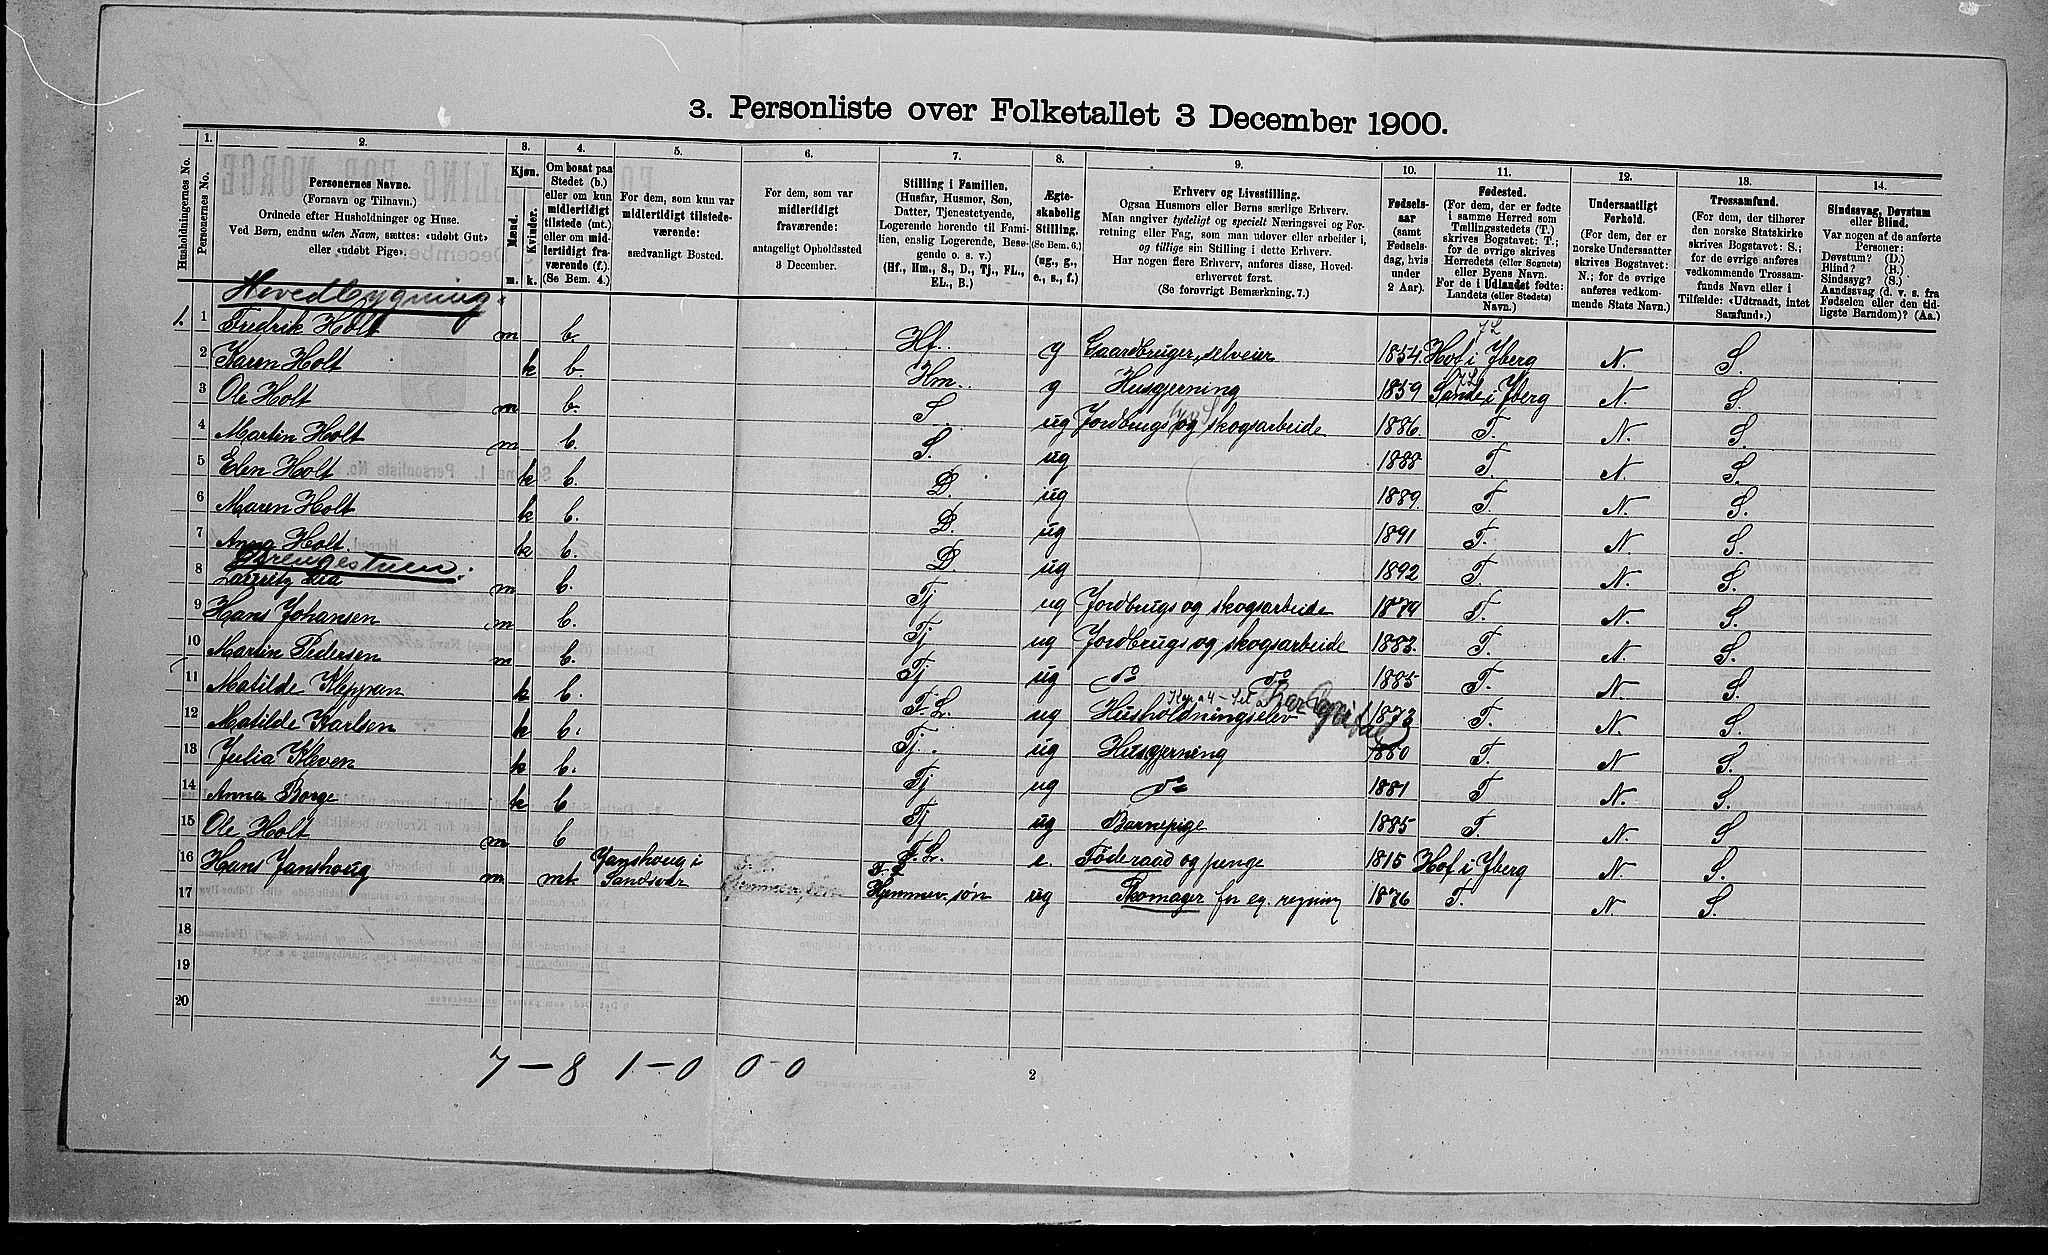 3. Personliste over Folketallet 3 December 1900.
Husholdningernes No.
1.
Personernes No.
2.
Personernes Navne.
(Fornavn og Tilnavn.)
Ordnede efter Husholdninger og Huse.
Ved Børn, endnu uden Navn, sættes: «udøbt Gut»
eller «udøbt Pige».
3.
Kjøn.
Mænd.
Kvinder.
m. k.
4.
Om bosat paa
Stedet (b.)
eller om kun
midlertidigt
tilstede (mt.)
eller om mid-
lertidigt fra-
værende (f.).
(Se Bem. 4.)
5.
For dem, som kun var
midlertidigt tilstede-
værende:
sædvanligt Bosted.
6.
For dem, som var
midlertidigt
fraværende:
antageligt Opholdssted
3 December.
7.
Stilling i Familien.
(Husfar, Husmor, Søn,
Datter, Tjenestetyende,
Logerende hørende til Fami-
lien, enslig Logerende, Besø-
gende o. s. v.)
(Hf., Hm., S., D., Tj., FL.,
EL., B.)
8.
Ægte-
skabelig
Stilling.
(Se Bem. 6.)
(ug., g.,
e., s., f.)
9.
Erhverv og Livsstilling.
Ogsaa Husmors eller Børns særlige Erhverv.
Man angiver tydeligt og specielt Næringsvei og For-
retning eller Fag, som man udøver eller arbeider i,
og tillige sin Stilling i dette Erhverv.
Har nogen flere Erhverv, anføres disse, Hoved-
erhvervet først.
(Se forøvrigt Bemærkning 7.)
10.
Fødsels-
aar
(samt
Fødsels-
dag, hvis
under
2 Aar).
11.
Fødested.
(For dem, der er fødte
i samme Herred som
Tællingsstedets (T.)
skrives Bogstavet: T.;
for de øvrige skrives
Herredets (eller Sognets)
eller Byens Navn.
For de i Udlandet fødte:
Landets (eller Stedets)
Navn.)
12.
Undersaatligt
Forhold.
(For dem, der er
norske Undersaatter
skrives Bogstavet:
N.; for de øvrige
anføres vedkom-
mende Stats Navn.)
13.
Trossamfund.
(For dem, der tilhører
den norske Statskirke
skrives Bogstavet: S.;
for de øvrige anføres
vedkommende Trossam-
funds Navn eller i
Tilfælde: «Udtraadt, intet
Samfund».)
14.
Sindssvag, Døvstum
eller Blind.
Var nogen af de anførte
Personer:
Døvstum? (D.)
Blind? (B.)
Sindssyg? (S.)
Aandssvag (d. v. s. fra
Fødselen eller den tid-
ligste Barndom)? (Aa.)
Hovedbygning.
1. 1 Fredrik Holt m b. Hf. g Gaardbruger, selveier 1854 Hof i Jberg N. S.
2 Karen Holt k b. Hm. g Husgjerning 1859 Sande i Jberg N. S.
3 Ole Holt m b. S. ug Jordbrugs og skogsarbeide 1886. T. N. S.
4 Martin Holt m b. S. ug 1888 T. N. S.
5 Elen Holt k b. D. ug 1889. T. N. S.
6 Maren Holt k b. D. ug 1891 T. N. S.
7 Anna Holt. k b. D. ug 1892 T. N. S.
Drengestuen:
8 Lauritz Lia m b. Tj ug Jordbrugs og skogsarbeide 1879 T. N. S.
9 Hans Johansen m b. Tj ug Jordbrugs og skogsarbeide 1883. T. N. S.
10 Martin Pedersen m b. Tj ug do do 1885 T. N. S.
11 Matilde Kleppan k b. F. L. ug Husholdningselev 1873 T. N. S.
12 Matilde Karlsen k b. Tj. ug Husgjerning 1880 T. N. S.
13 Julia Kleven k b. Tj ug do 1881 T N. S.
14 Anna Borge k b Tj ug Barnepige 1885 T. N. S
15 Ole Holt m b F. L. e. Føderaad og penge 1815 Hof i Jberg N S.
16 Hans Janshoug m mt Janshoug i Sandsvær Hjemmev. søn ug Skomager for eg. regning 1876 T. N. S.
17
18
19
20
7 – 8 1 – 0 0 – 0
2